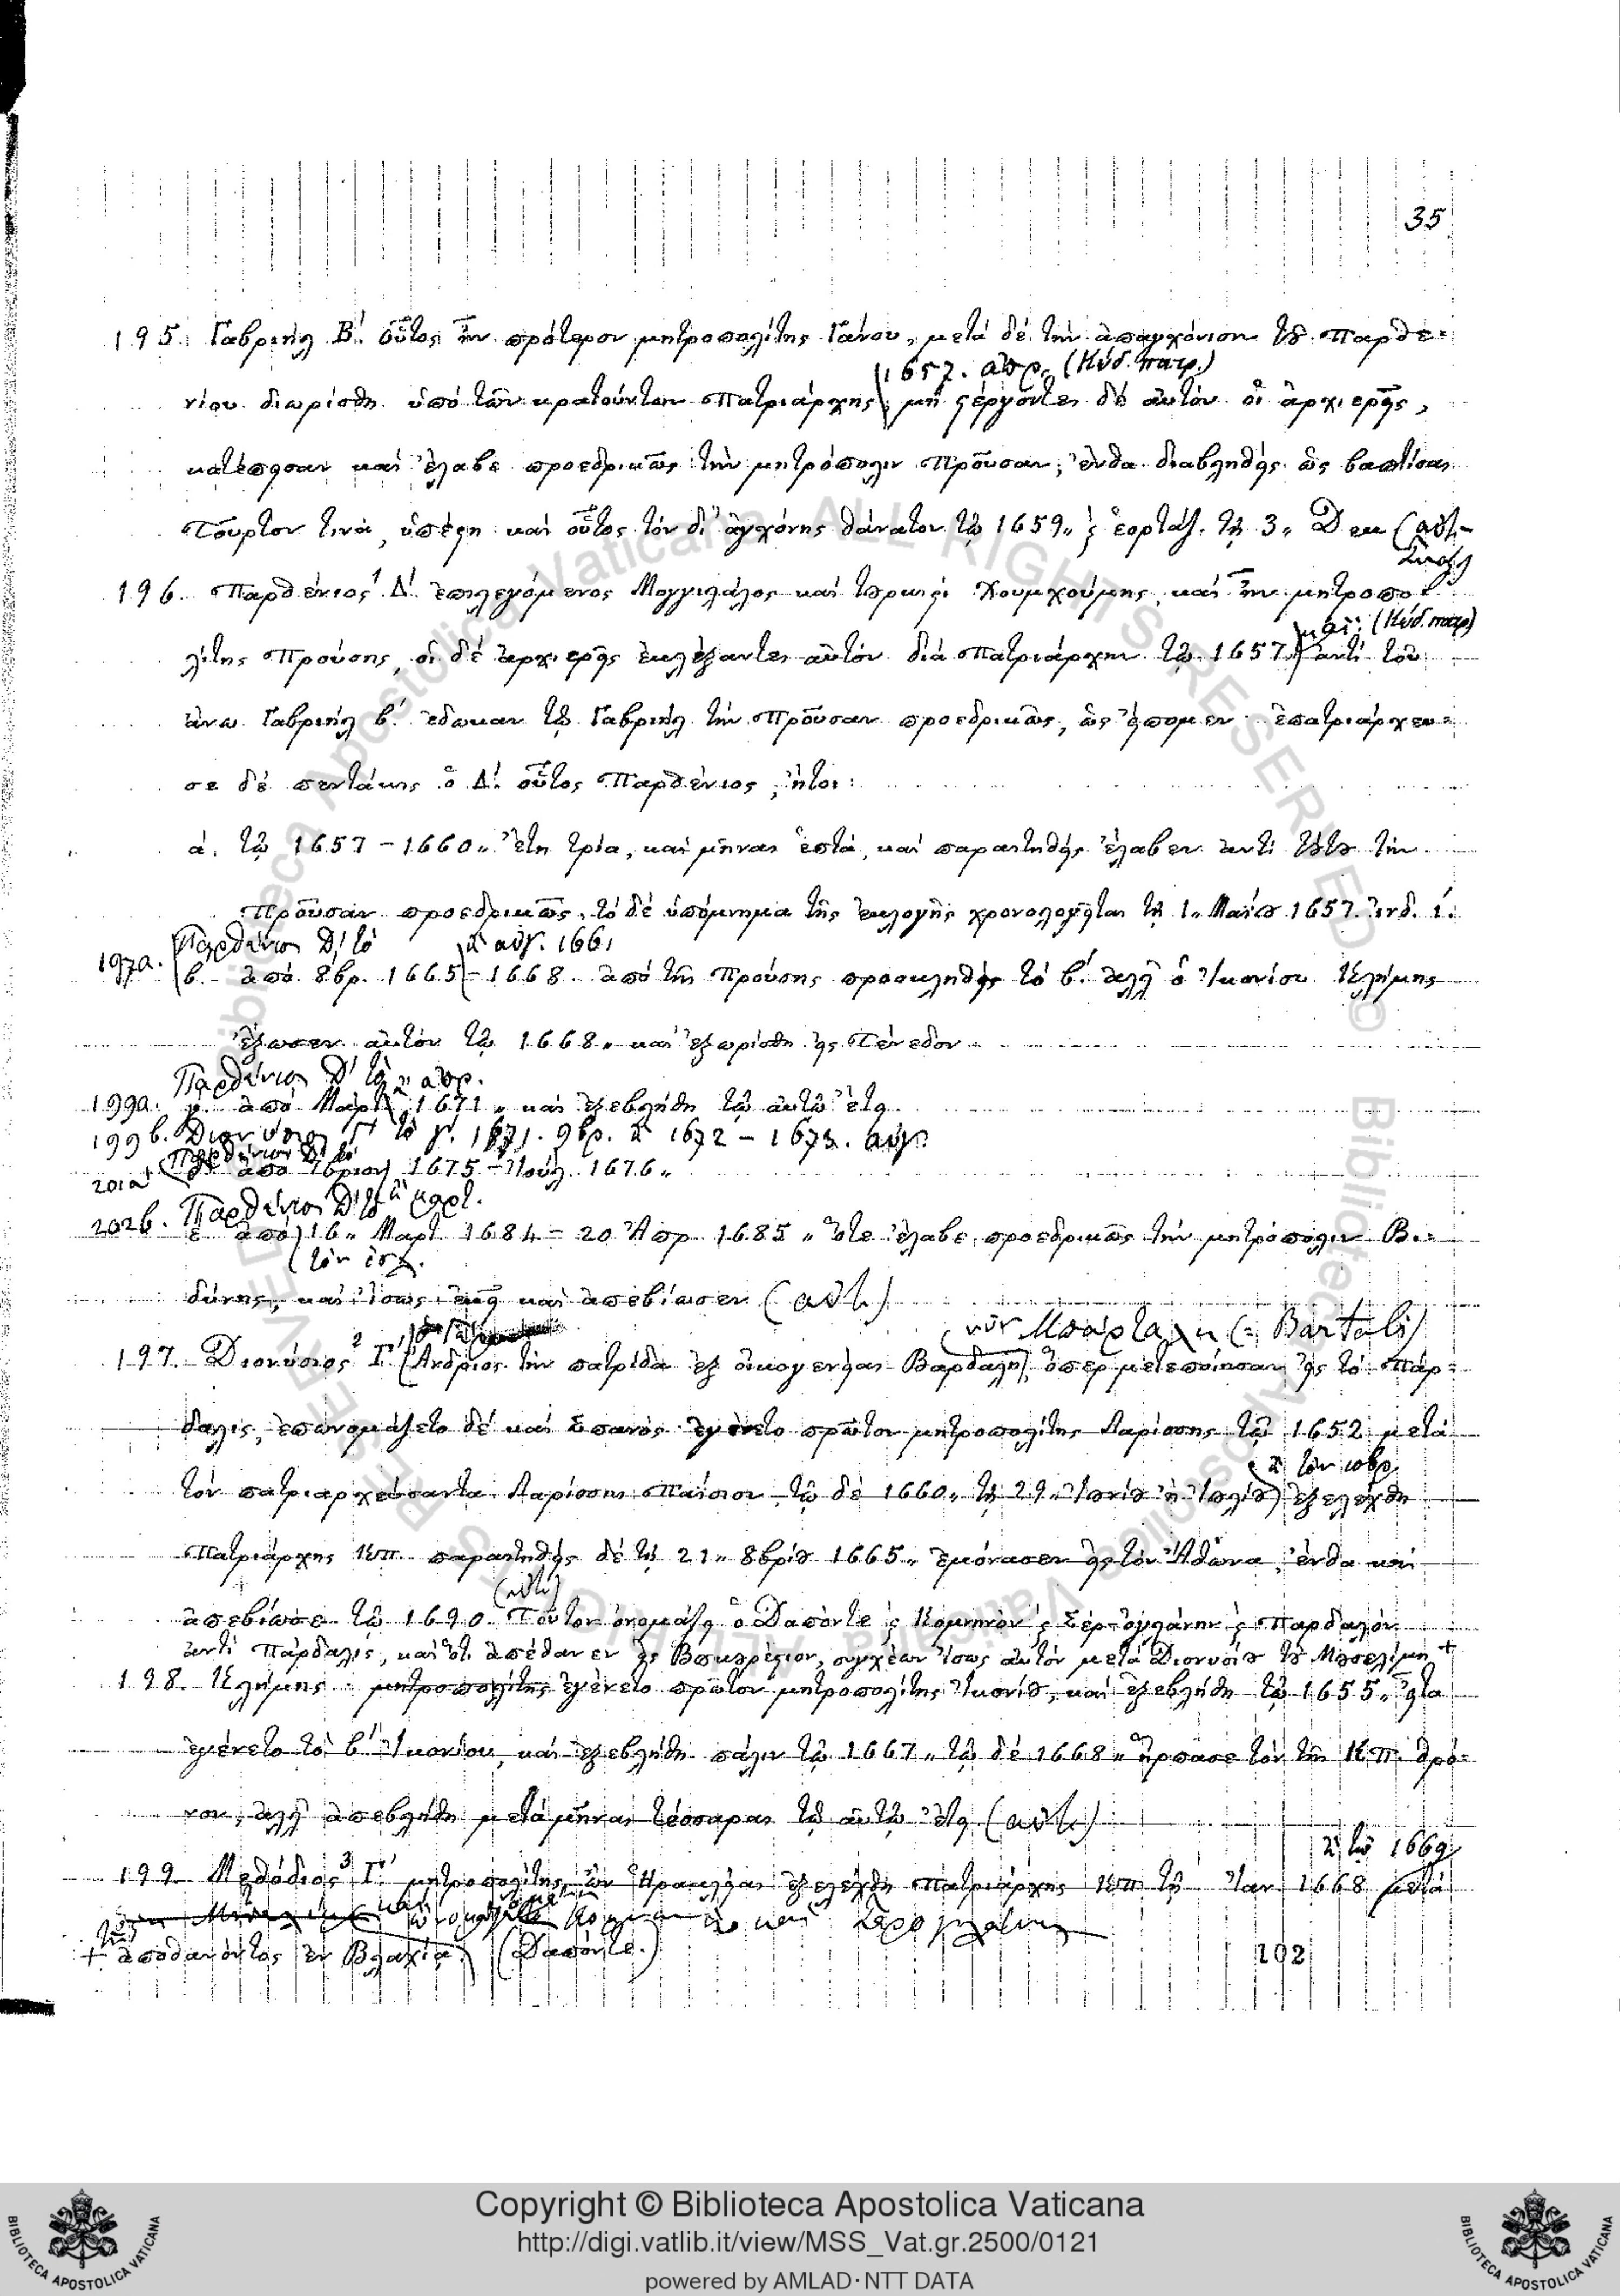 35
195. Γαβριὴλ Β΄. οὗτος ἦν πρότερον μητροπολίτης Γάνου, μετὰ δὲ τὴν ἀπαγχόνισιν τοῦ Παρθε-
1657. ἀπρ. (Κύδ. πατρ.)
νίου διωρίσθη ὑπὸ τῶν κρατούντων Πατριάρχης, μὴ στέργοντες δὲ αὐτὸν οἱ ἀρχιερεῖς,
κατέπεισαν καὶ ἔλαβε προεδρικῶς τὴν μητρόπολιν Προῦσαν, ἔνθα διαβληθεὶς ὡς βαπτίσας
Τοῦρκον τινὰ, ὑπέστη καὶ οὗτος τὸν δι' ἀγχόνης θάνατον τῷ 1659,, ἑορτάζ. τῇ 3,, Δεκ
196. Παρθένιος Δ΄. ἐπιλεγόμενος Μογγιλάλος καὶ τουρκιστὶ Χουμχούμης, καὶ ἦν μητροπο-
μαΐ. (Κύδ. πατρ)
λίτης Προύσης, οἱ δὲ ἀρχιερεῖς ἐκλέξαντες αὐτὸν διὰ Πατριάρχην τῷ 1657,, ἀντὶ τοῦ
ἄνω Γαβριὴλ β΄. ἔδωκαν τῷ Γαβριὴλ τὴν Προῦσαν προεδρικῶς, ὡς εἴπομεν ἐπατριάρχευ-
σε δὲ πεντάκις ὁ Δ΄. οὗτος Παρθένιος, ἤτοι:
ά. τῷ 1657 - 1660,, ἔτη τρία, καὶ μῆνας ἑπτά, καὶ παραιτηθεὶς ἔλαβεν ἀντὶ τούτου τὴν
Προῦσαν προεδρικῶς, τὸ δὲ ὑπόμνημα τῆς ἐκλογῆς χρονολογεῖται τῇ 1,, Μαΐου 1657. ἰνδ. ι΄.
Παρθένιος Δ΄ τὸ αὐγ. 1661
197α. β. ἀπὸ 8βρ. 1665 - 1668 ἀπὸ τῆς Προύσης προσκληθεὶς τὸ β΄. ἀλλ' ὁ Ἰκονίου Κλήμης
ἔξωσεν αὐτὸν τῷ 1668,, καὶ ἐξωρίσθη εἰς Τένεδον
Παρθένιος Δ΄ τὸ ἀπρ.
199α. γ. ἀπὸ Μαρτ. 1671,, καὶ ἐξεβλήθη τῷ αὐτῷ ἔτει
199β. Διονύσιος τὸ 1671. 9βρ. 1672 - 1673. αὐγ.
Παρθένιος Δ΄ τὸ
201α δ. ἀπὸ 1675 - Ἰούλ. 1676,,
202β. Παρθένιος Δ΄ τὸ
ε ἀπὸ 16,, Μαρτ 1684 - 20 Ἀπρ 1685,, ὅτε ἔλαβε προεδρικῶς τὴν μητρόπολιν Βι-
δύνης, καὶ ἴσως ἐκεῖ καὶ ἀπεβίωσεν
νῦν Μπάρταλη (= Bartoli)
197. Διονύσιος Γ΄. Ἄνδριος τὴν πατρίδα ἐξ οἰκογενείας Βαρδαλῆ, ὅπερ μετεποίησαν εἰς τὸ Πάρ-
δαλις, ἐπωνομάζετο δὲ καὶ Σπανός· ἐγένετο πρῶτον μητροπολίτης Λαρίσσης τῷ 1652 μετὰ
τὸν πατριαρχεύσαντα Λαρίσσης Παΐσιον, τῷ δὲ 1660,, τῇ 29,, Ἰουνίου ἢ Ἰουλίου ἐξελέχθη
Πατριάρχης Κπ. παραιτηθεὶς δὲ τῇ 21,, 8βρίου 1665,, ἐμόνασεν εἰς τὸν Ἄθωνα, ἔνθα καὶ
ἀπεβίωσε τῷ 1690. Τοῦτον ὀνομάζει ὁ Δαπόντε Κομνηνὸν Σερ-ογλάνην Παρδαλὸν
ἀντὶ Πάρδαλις, καὶ ὅτι ἀπέθανεν εἰς Βουκουρέστιον, συγχέων ἴσως αὐτὸν μετὰ Διονυσίου τοῦ Μουσελίμη +
198. Κλήμης ἐγένετο πρῶτον μητροπολίτης Ἰκονίου, καὶ ἐξεβλήθη τῷ 1655,, εἶτα
ἐγένετο τὸ β΄ Ἰκονίου, καὶ ἐξεβλήθη πάλιν τῷ 1667,, τῷ δὲ 1668,, ἥρπασε τὸν τῆς Κπ. θρό-
νον, ἀλλ' ἀπεβλήθη μετὰ μῆνας τέσσαρας τῷ αὐτῷ ἔτει
τῷ 1669
199. Μεθόδιος Γ΄. μητροπολίτης ὢν Ἡρακλείας ἐξελέχθη πατριάρχης Κπ τῷ Ἰαν. 1668 μετὰ
+ ἀποθανόντος ἐν Βλαχίᾳ. (Δαπόντε.)
102
Copyright © Biblioteca Apostolica Vaticana
http://digi.vatlib.it/view/MSS_Vat.gr.2500/0121
powered by AMLAD·NTT DATA